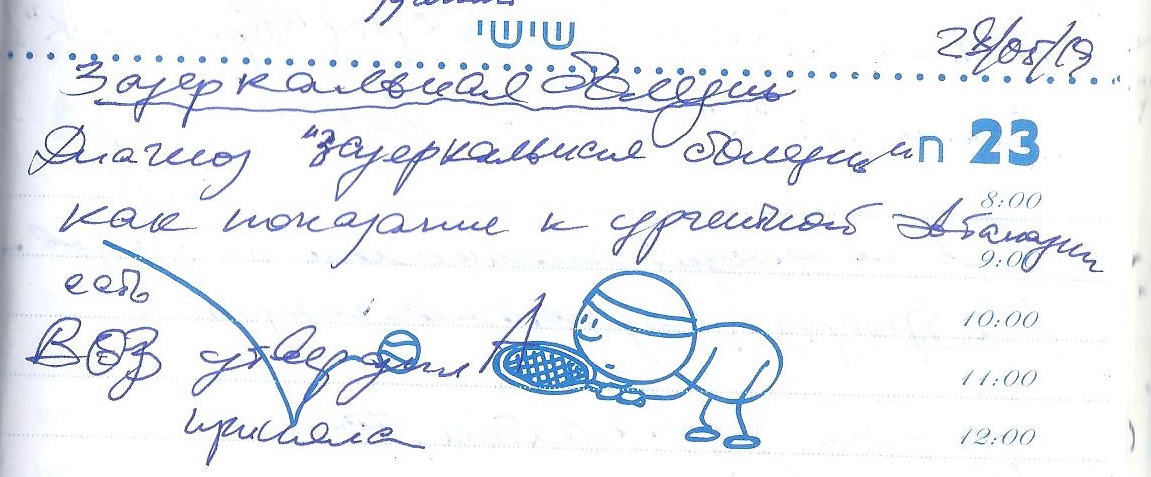 שישי
28/05/19
Зазеркальная болезнь
Диагноз "Зазеркальная болезнь"
ח 23
как показание к урчентной Автаназии
8:00
9:00
есть
10:00
ВОЗ утвердила
11:00
приняла
12:00